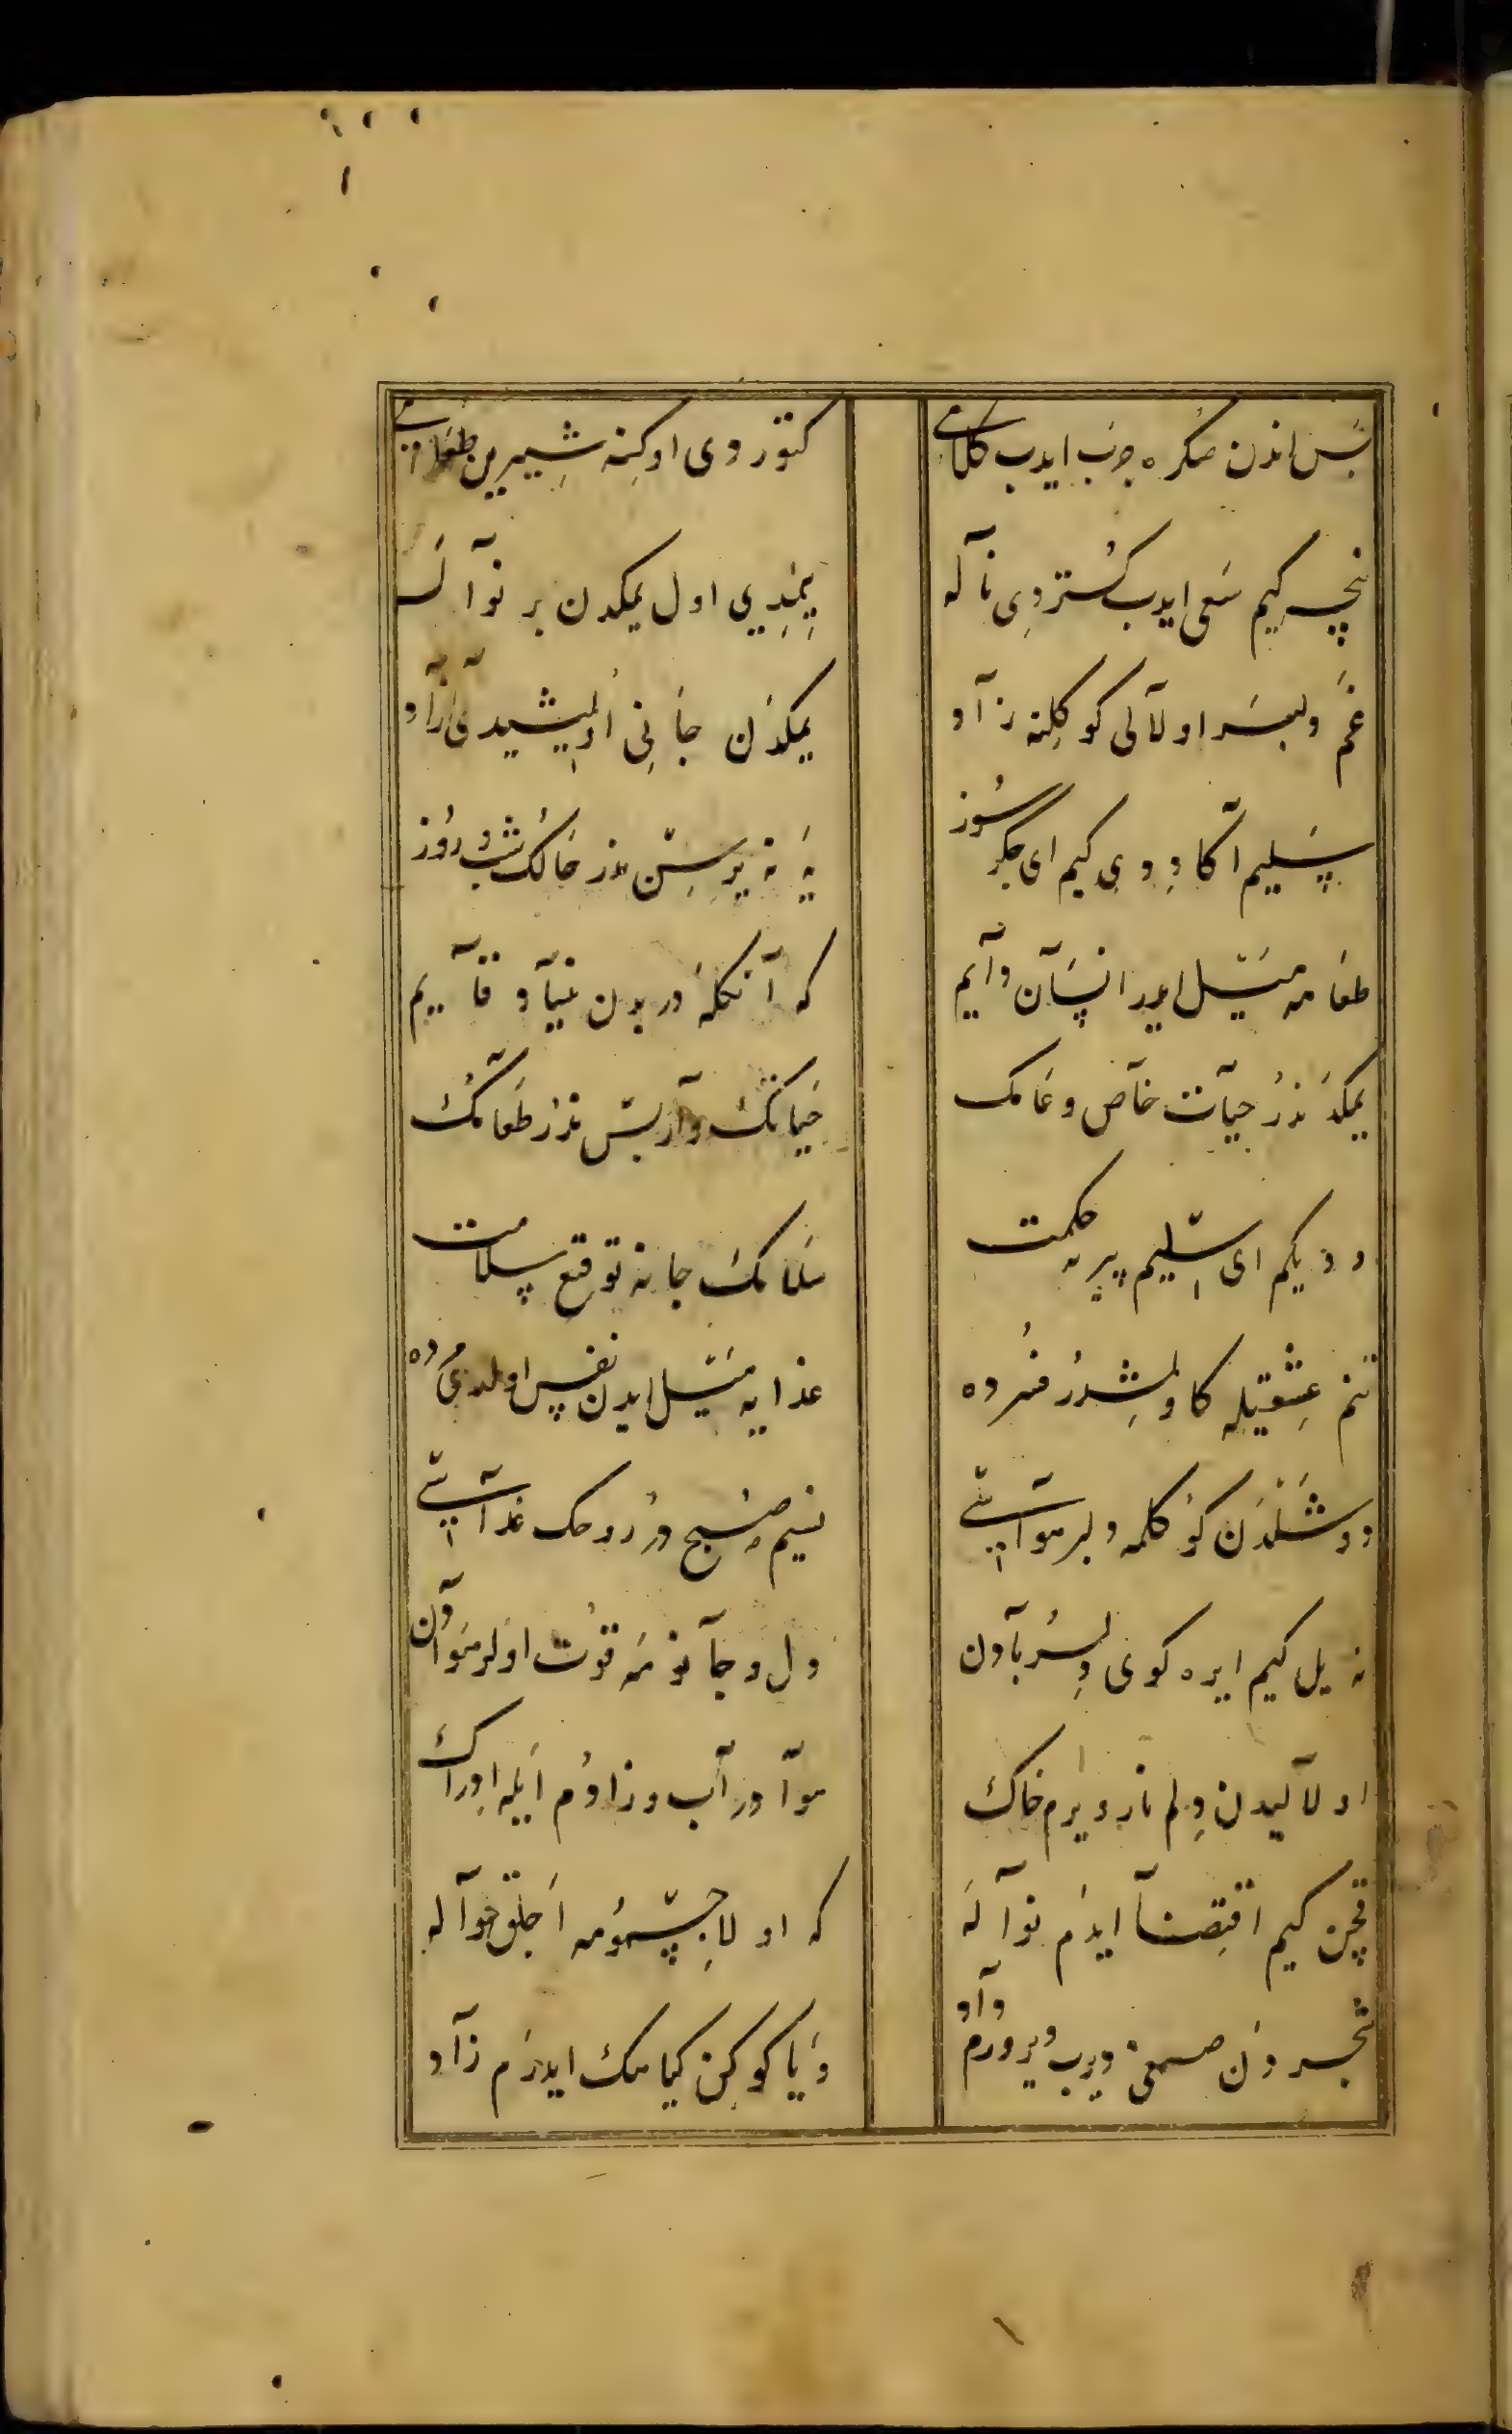 بس اندن صكره چرب ایدب كلامی كتوردی اوكنه شیرین طعامی
نیچه كیم سعی ایدب كستردی ناله یمدی اول یمكدن بر نواله
غم دلبر اولالی كوكلنه زاد یمكدن جانی اولمیشیدی آزاد
سلیم آكا ددی كیم ای جكر سوز یه نه یرسن ندر حالك شب و روز
طعامه میل ایدر انسان دایم كه آنكله در بدن بنیاد قایم
یمكدندر حیات خاص و عامك حیاتك وار بس ندر طعامك
ددی كیم ای سلیم پیر حكمت سلامك جانه توقیع سلامت
تنم عشقیله كاولمشدر فسرده غذایه میل ایدن نفس اولدی مرده
دوشلدن كوكلمه دلبر هواسی نسیم صبحدر روحك غذاسی
نه یل كیم ایره كوی دلرباون دل و جانومه قوت اولر هوادن
اولالیدن دلم نار و یرم خاك هوا در آب و زادوم ایله ادراك
قچن كیم اقتضا ایدم نواله كه اولا جسمومه اجلق حواله
شجردن صمغ ویرب ویرورم داد ویا كوكن كیاهك ایدرم زاد